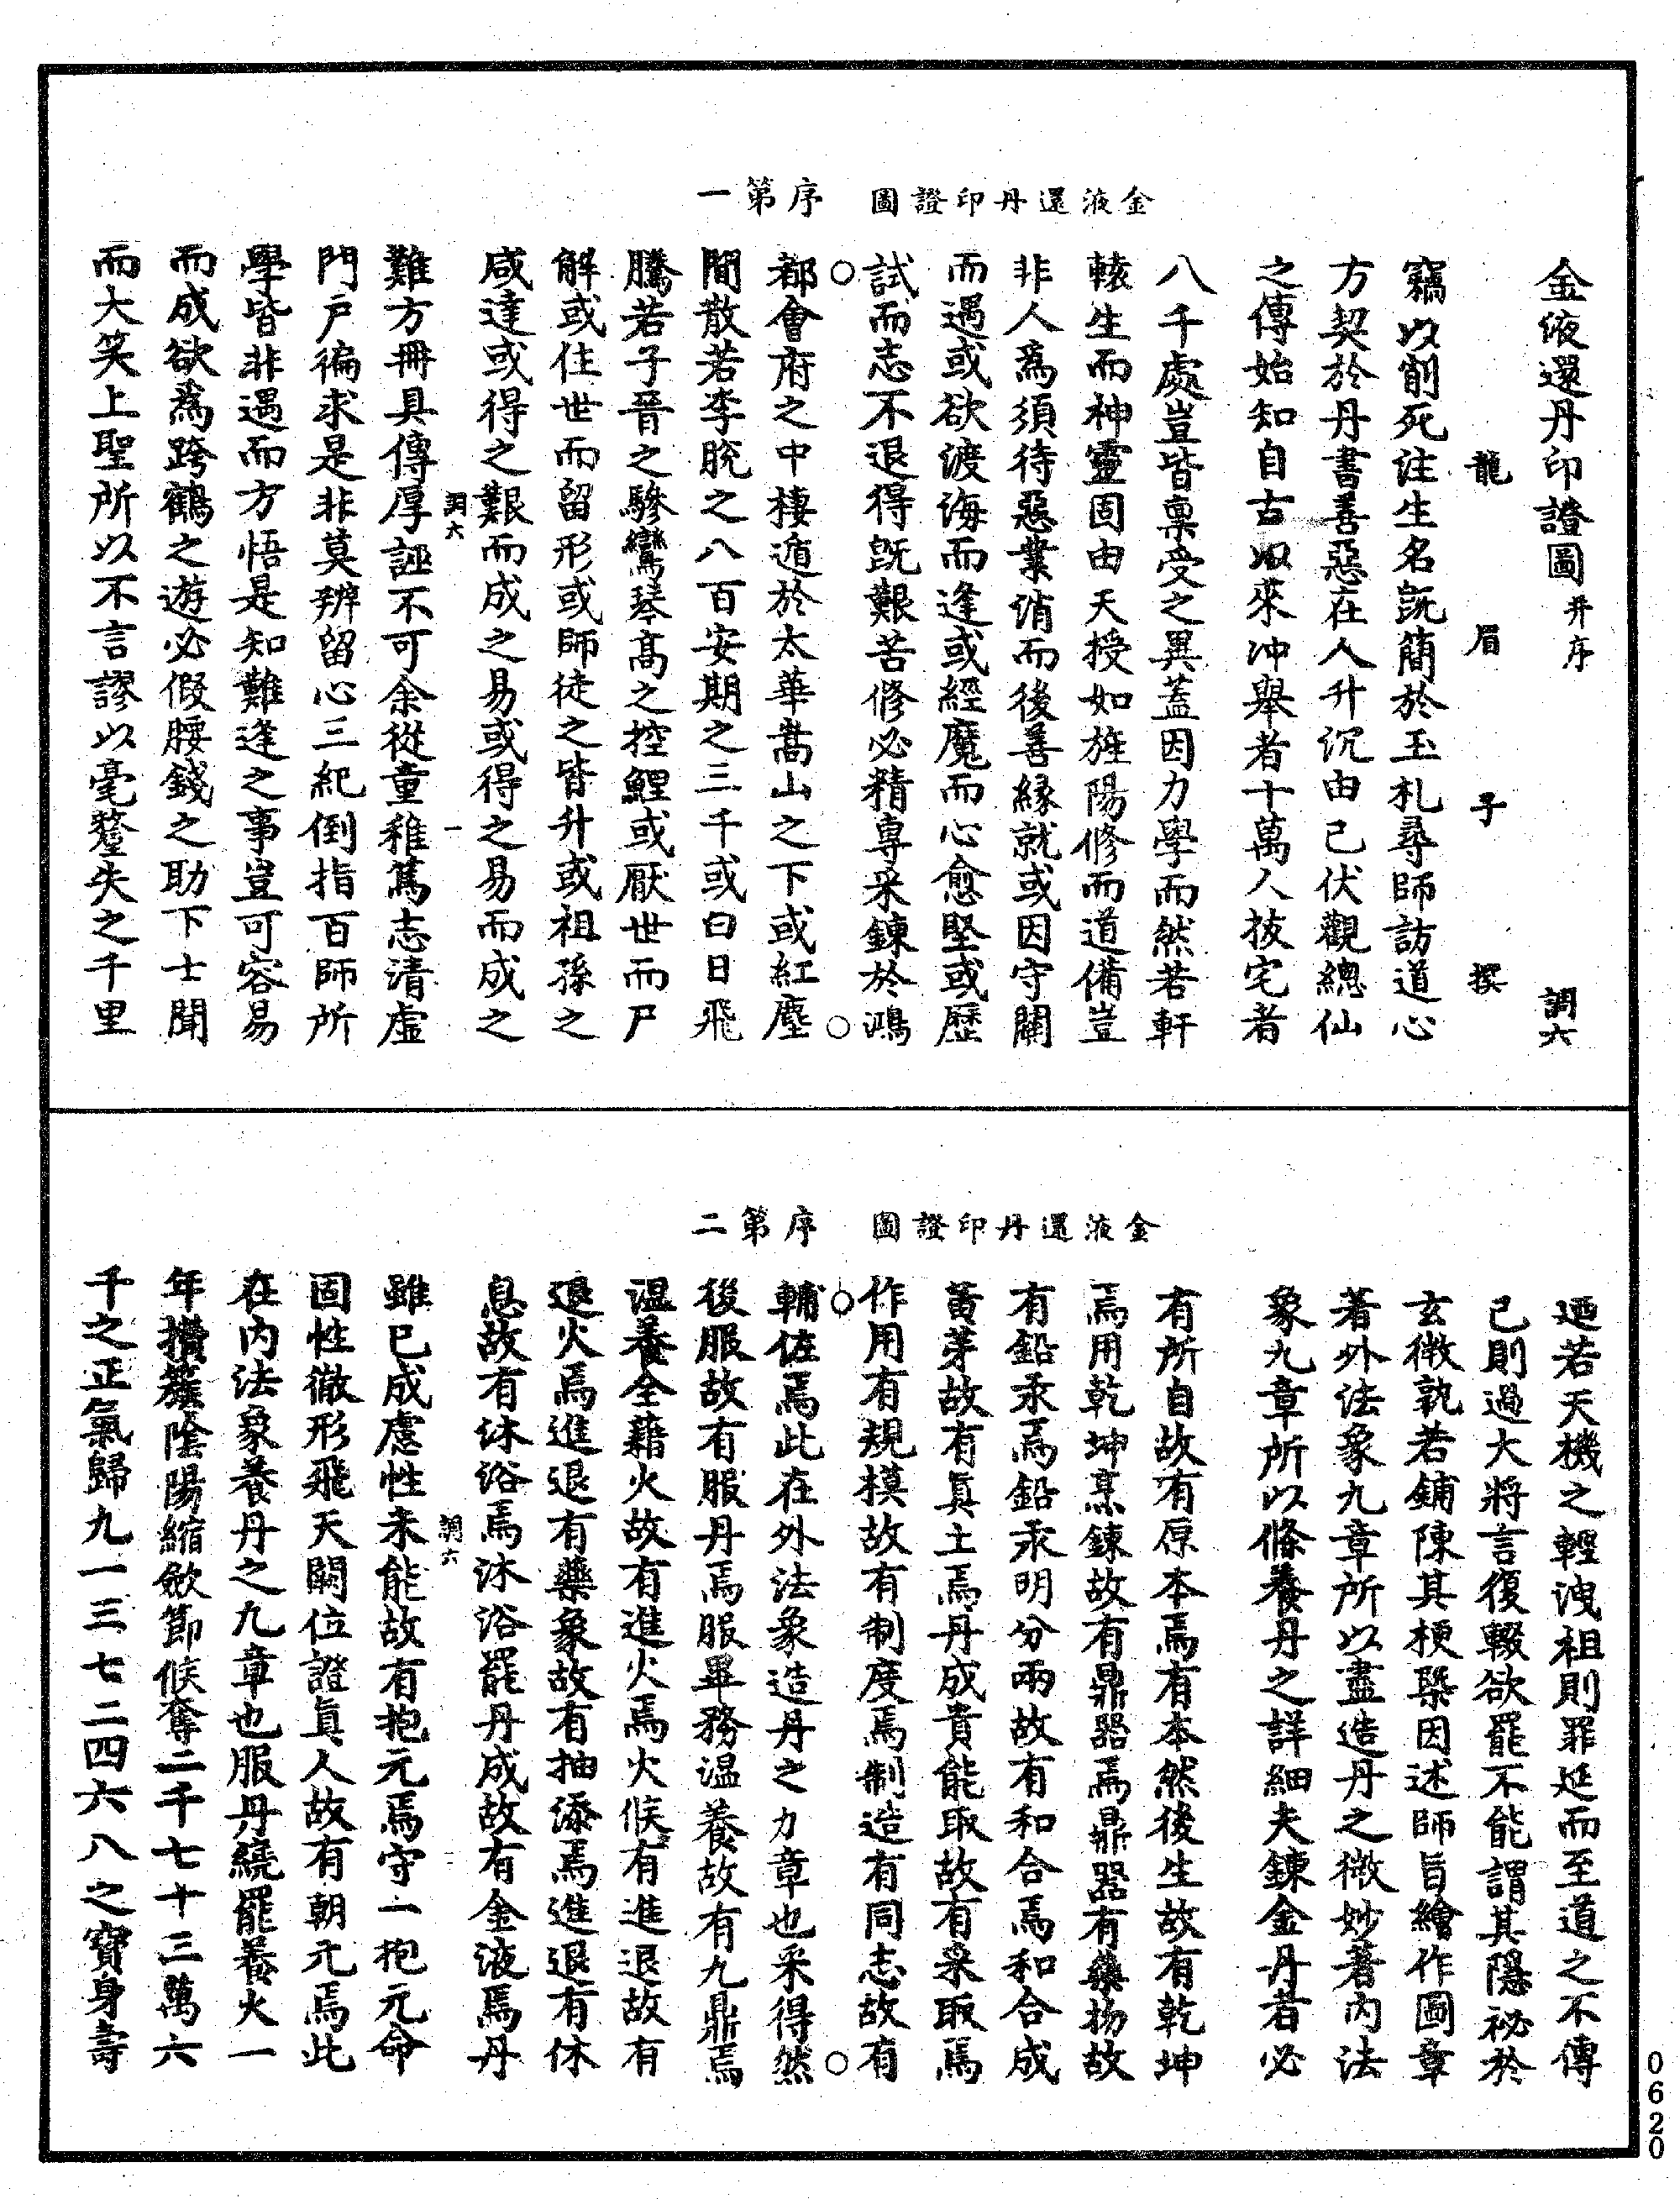 金液還丹印證圖 序 第一
金液還丹印證圖并序 調六
龍眉子撰
竊以削死注生名旣簡於玉札尋師訪道心
方契於丹書善惡在人升沉由己伏觀總仙
之傳始知自古以來冲舉者十萬人拔宅者
八千處豈皆稟受之異蓋因力學而然若軒
轅生而神靈固由天授如旌陽修而道備豈
非人爲須待惡業消而後善緣就或因守闕
而遇或欲渡海而逢或經魔而心愈堅或歷
試而志不退得旣艱苦修必精專采鍊於鴻
都會府之中棲遁於太華嵩山之下或紅塵
間散若李脫之八百安期之三千或白日飛
騰若子晉之驂鸞琴高之控鯉或厭世而尸
解或住世而留形或師徒之皆升或祖孫之
咸達或得之艱而成之易或得之易而成之
調六 一
難方冊具傳厚誣不可余從童稚篤志清虛
門戶徧求是非莫辨留心三紀倒指百師所
學皆非遇而方悟是知難逢之事豈可容易
而成欲爲跨鶴之遊必假腰錢之助下士聞
而大笑上聖所以不言謬以毫釐失之千里
金液還丹印證圖 序 第二
迺若天機之輕洩祖則罪延而至道之不傳
己則過大將言復輟欲罷不能謂其隱祕於
玄微孰若鋪陳其梗槩因述師旨繪作圖章
著外法象九章所以盡造丹之微妙著內法
象九章所以條養丹之詳細夫鍊金丹者必
有所自故有原本焉有本然後生故有乾坤
焉用乾坤烹鍊故有鼎器焉鼎器有藥物故
有鉛汞焉鉛汞明分兩故有和合焉和合成
黃芽故有眞土焉丹成貴能取故有采取焉
作用有規模故有制度焉制造有同志故有
輔佐焉此在外法象造丹之九章也采得然
後服故有服丹焉服畢務溫養故有九鼎焉
溫養全藉火故有進火焉火候有進退故有
退火焉進退有藥象故有抽添焉進退有休
息故有沐浴焉沐浴罷丹成故有金液焉丹
調六 二
雖已成慮性未能故有抱元焉守一抱元命
固性徹形飛天闕位證眞人故有朝元焉此
在內法象養丹之九章也服丹繞罷養火一
年攢簇陰陽縮歛節候奪二千七十三萬六
千之正氣歸九一三七二四六八之寶身壽
0620